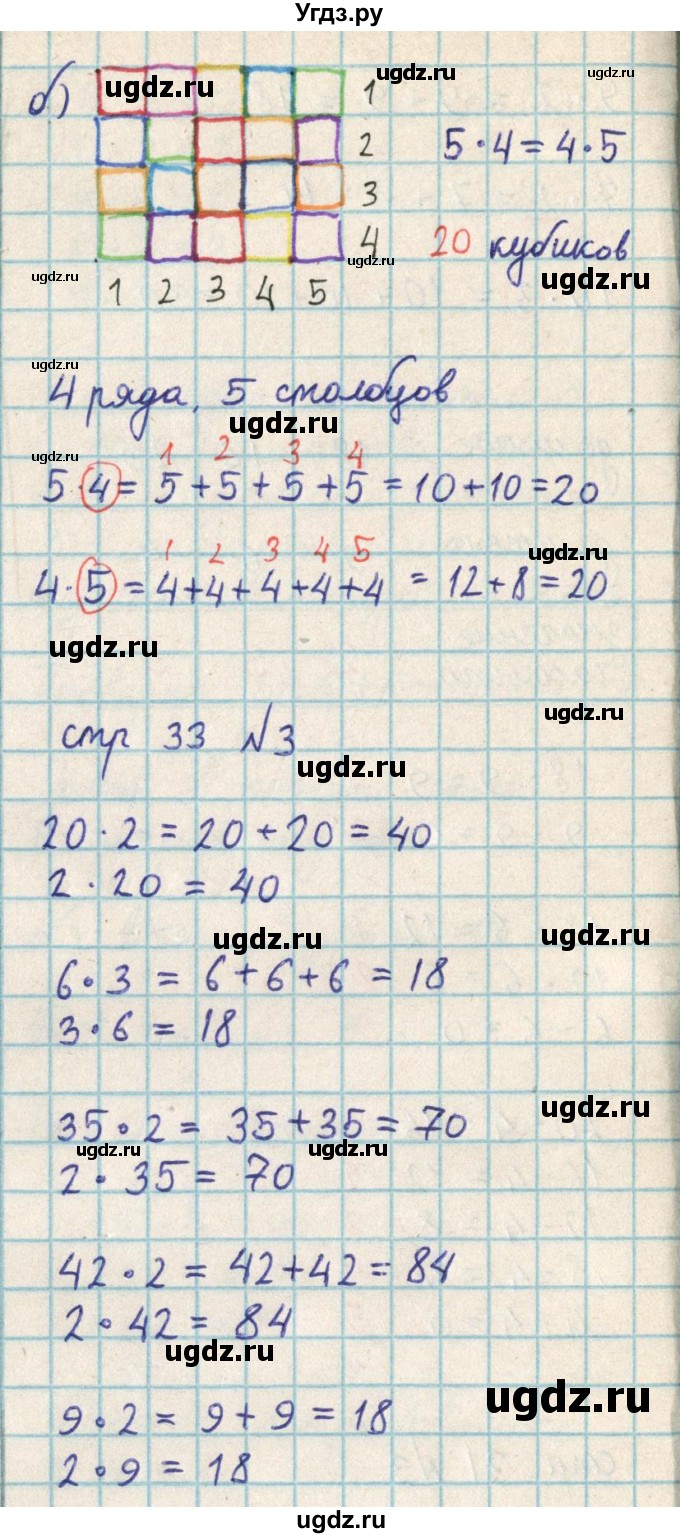 Угдз.ру
б)
ugdz.ru
ugdz.ru
ugdz.ru
1
2
3
4
5 · 4 = 4 · 5
20 кубиков
ugdz.ru
ugdz.ru
ugdz.ru
1 2 3 4 5
4 ряда, 5 столбцов
ugdz.ru
ugdz.ru
1 2 3 4
5 · 4 = 5 + 5 + 5 + 5 = 10 + 10 = 20
ugdz.ru
1 2 3 4 5
4 · 5 = 4 + 4 + 4 + 4 + 4 = 12 + 8 = 20
ugdz.ru
ugdz.ru
стр 33 №3
ugdz.ru
20 · 2 = 20 + 20 = 40
2 · 20 = 40
ugdz.ru
ugdz.ru
6 · 3 = 6 + 6 + 6 = 18
3 · 6 = 18
ugdz.ru
35 · 2 = 35 + 35 = 70
ugdz.ru
ugdz.ru
2 · 35 = 70
42 · 2 = 42 + 42 = 84
2 · 42 = 84
ugdz.ru
ugdz.ru
9 · 2 = 9 + 9 = 18
2 · 9 = 18
ugdz.ru